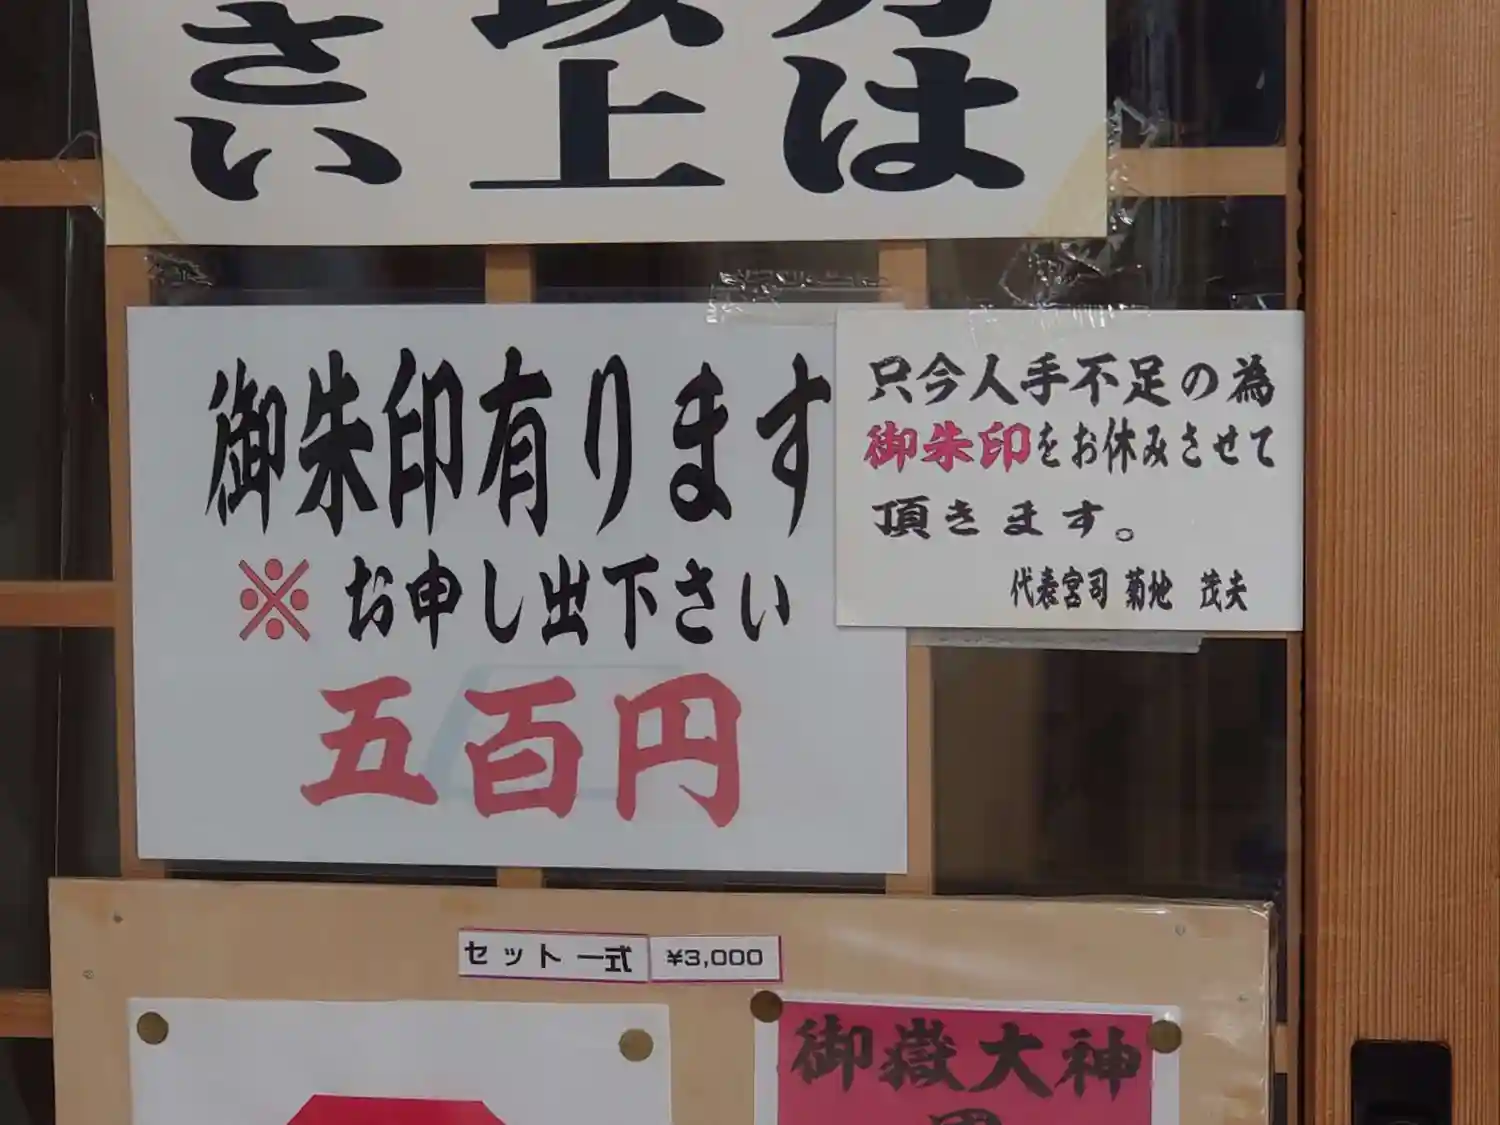 は
上
さい
御朱印有ります
※お申し出下さい
五百円
只今人手不足の為
御朱印をお休みさせて
頂きます。
代表宮司 菊地 茂夫
セット一式 ¥3,000
御嶽大神